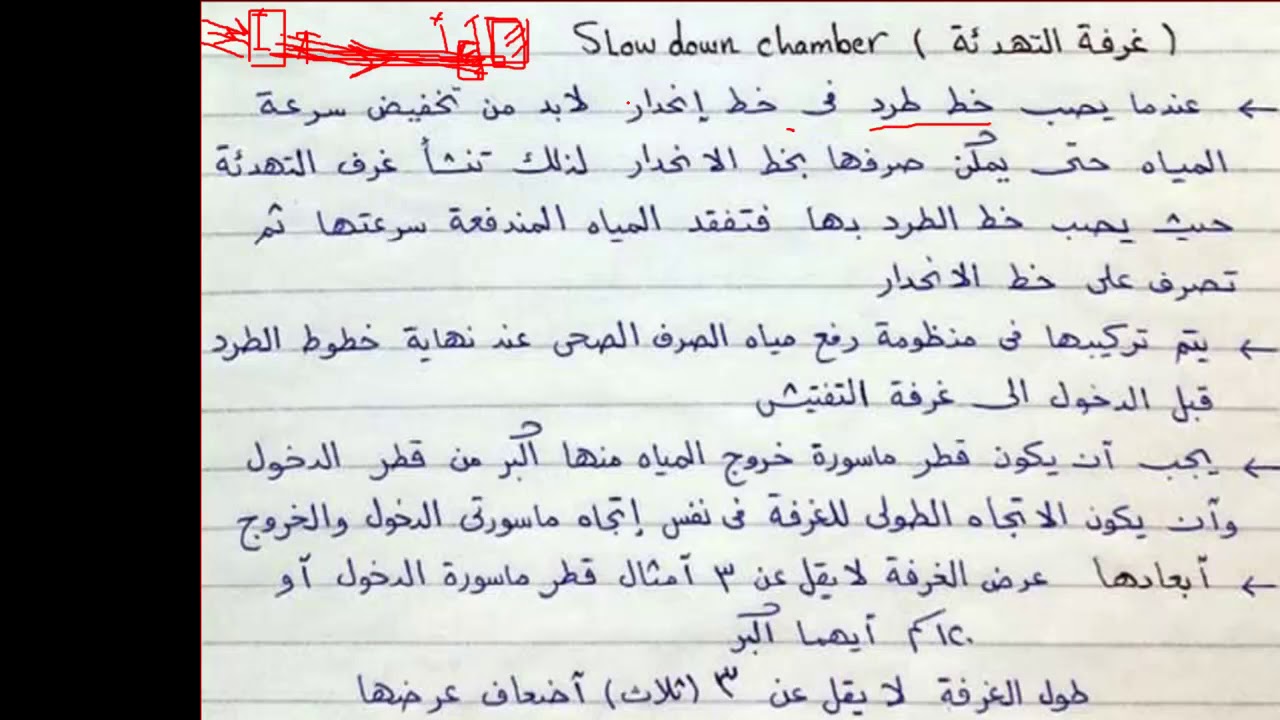 Slow down chamber ( غرفة التهدئة )
← عندما يصب خط طرد فى خط إنحدار لابد من تخفيض سرعة
المياه حتى يمكن صرفها بخط الانحدار لذلك تنشأ غرف التهدئة
حيث يصب خط الطرد بها فتفقد المياه المندفعة سرعتها ثم
تصرف على خط الانحدار
← يتم تركيبها فى منظومة رفع مياه الصرف الصحى عند نهاية خطوط الطرد
قبل الدخول الى غرفة التفتيش
← يجب أن يكون قطر ماسورة خروج المياه منها أكبر من قطر الدخول
وأن يكون الاتجاه الطولى للغرفة فى نفس إتجاه ماسورتى الدخول والخروج
← أبعادها عرض الغرفة لا يقل عن ٣ أمثال قطر ماسورة الدخول أو
١٢٠ سم أيهما أكبر
طول الغرفة لا يقل عن ٣ (ثلاث) أضعاف عرضها